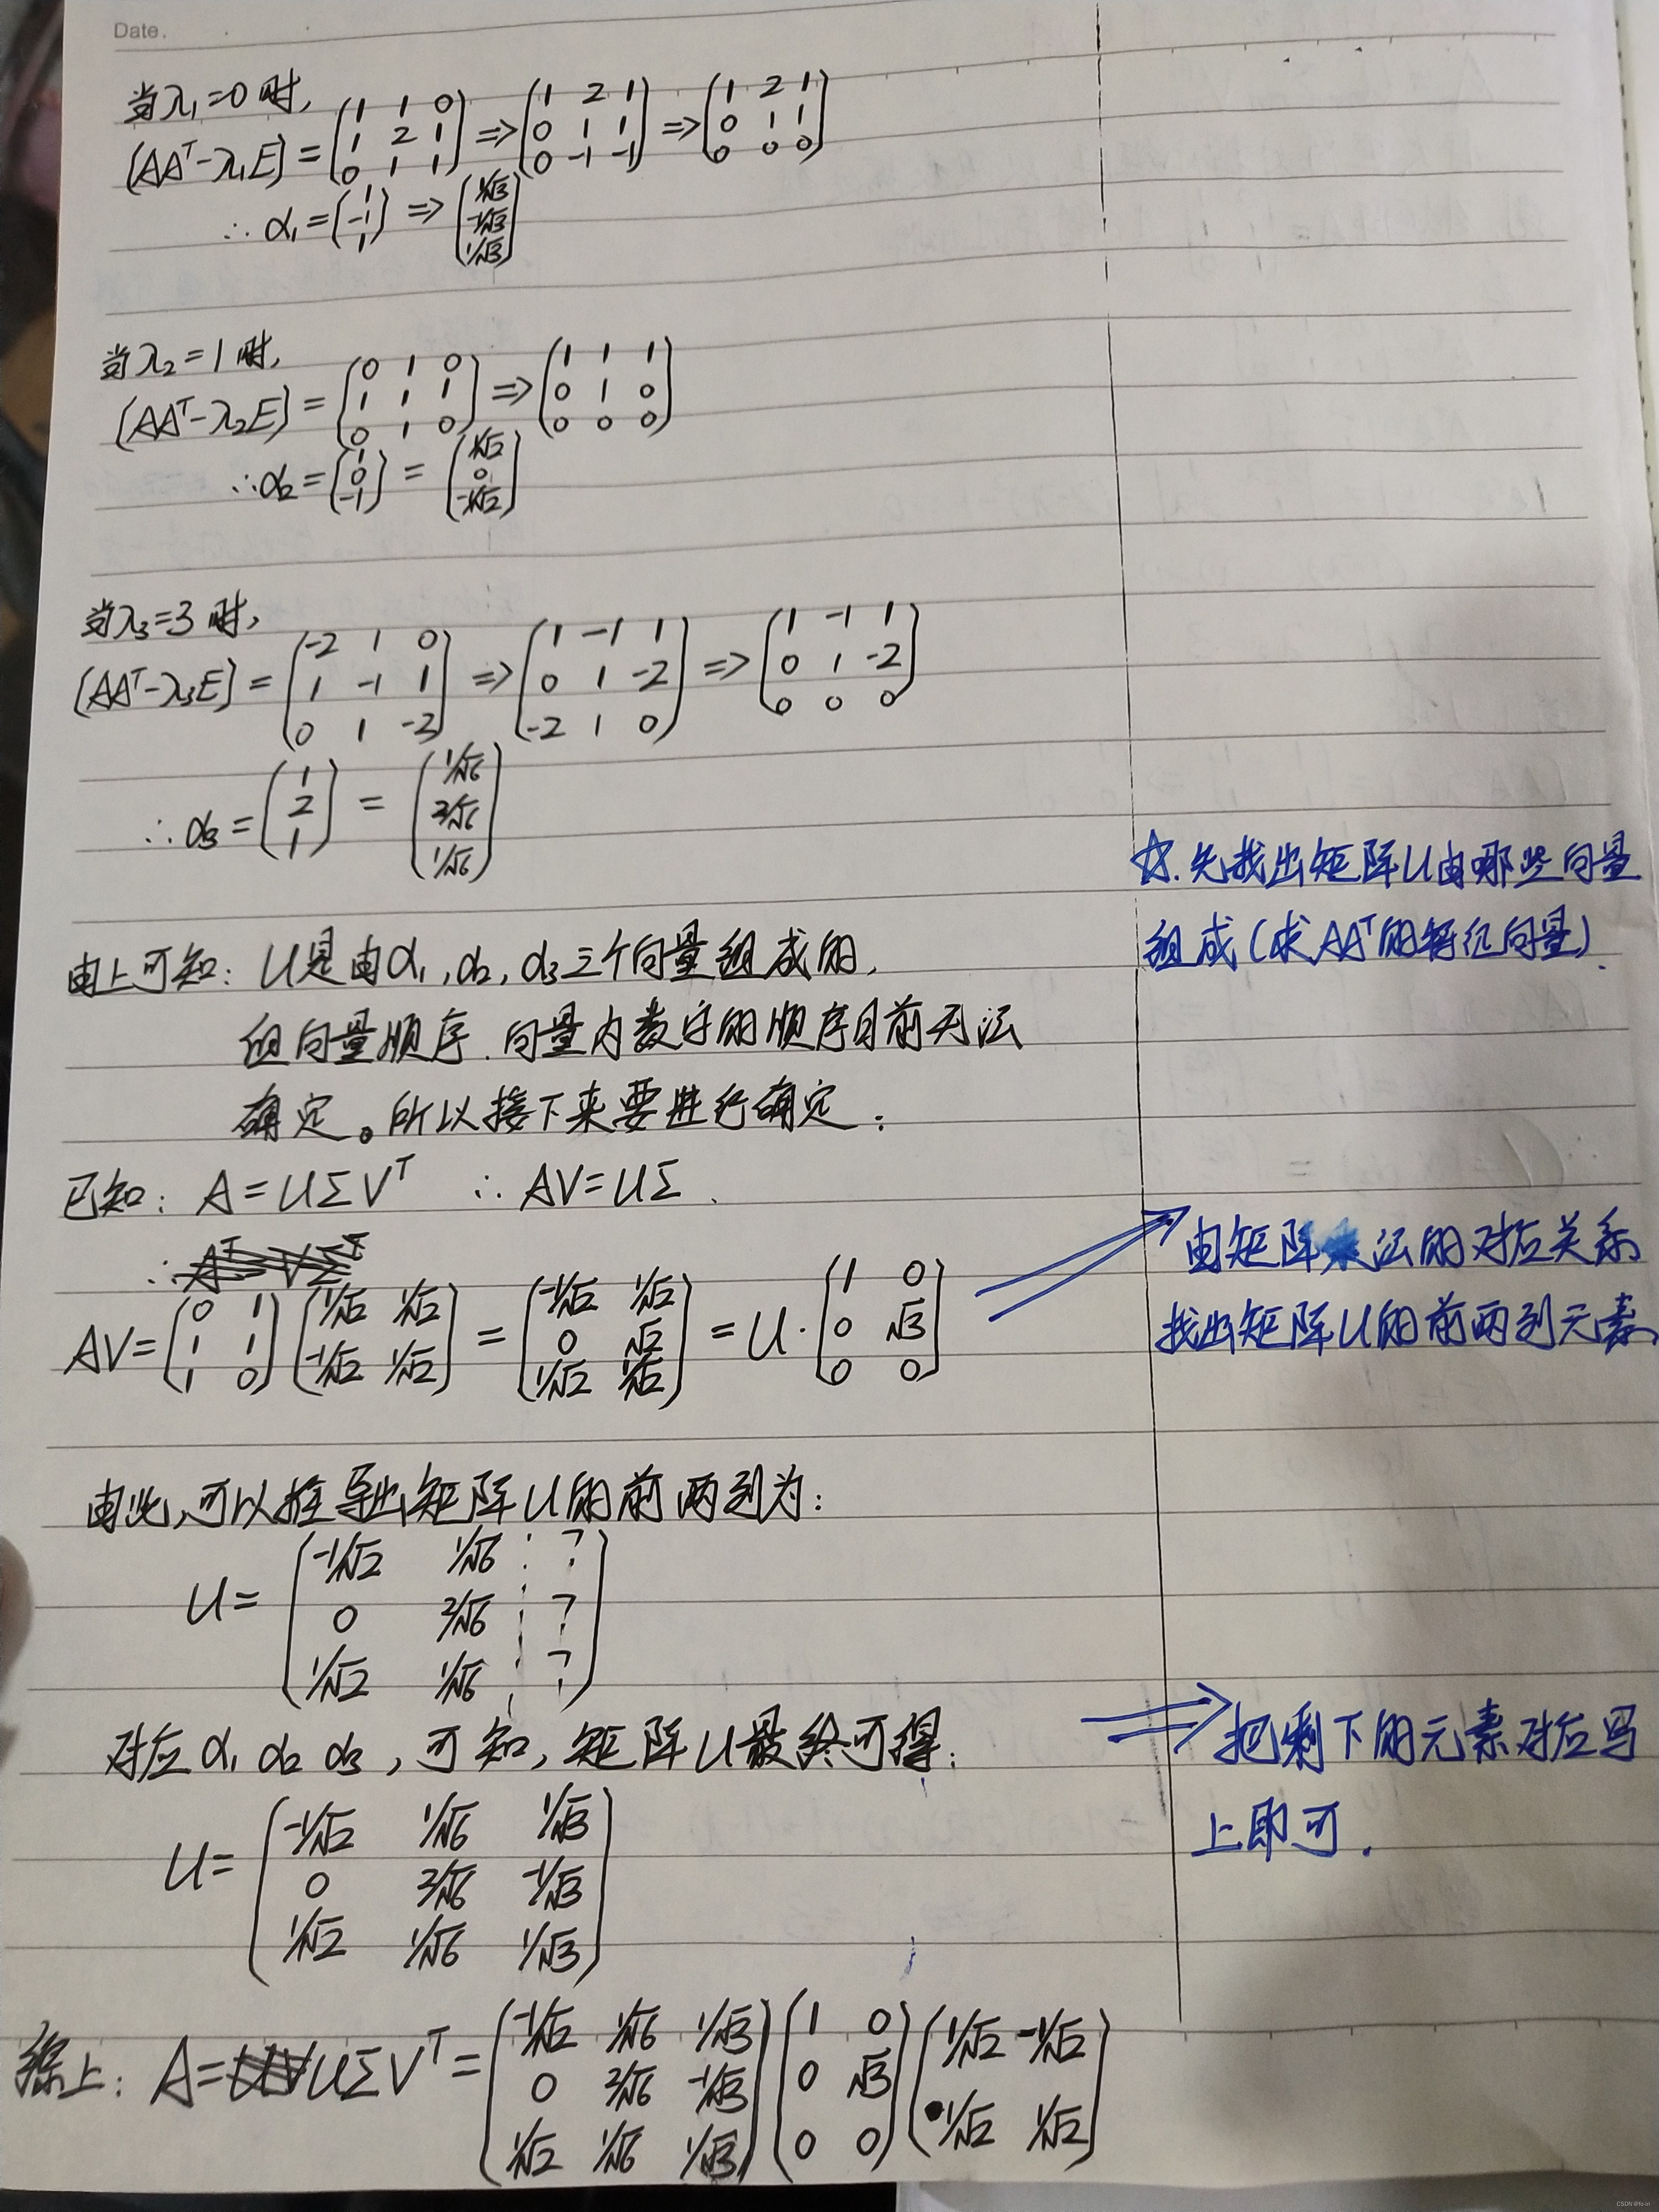 Date.
当λ₁=0时,
(AAᵀ-λ₁E) = (1 1 0; 1 2 1; 0 1 1) ⇒ (1 2 1; 0 1 1; 0 -1 -1) ⇒ (1 2 1; 0 1 1; 0 0 0)
∴ α₁ = (1; -1; 1) ⇒ (1/√3; -1/√3; 1/√3)
当λ₂=1时,
(AAᵀ-λ₂E) = (0 1 0; 1 1 1; 0 1 0) ⇒ (1 1 1; 0 1 0; 0 0 0)
∴ α₂ = (1; 0; -1) = (1/√2; 0; -1/√2)
当λ₃=3时,
(AAᵀ-λ₃E) = (-2 1 0; 1 -1 1; 0 1 -2) ⇒ (1 -1 1; 0 1 -2; -2 1 0) ⇒ (1 -1 1; 0 1 -2; 0 0 0)
∴ α₃ = (1; 2; 1) = (1/√6; 2/√6; 1/√6)
☆. 先找出矩阵U由哪些向量
组成(求AAᵀ的特征向量).
由上可知: U是由α₁,α₂,α₃三个向量组成的,
但向量顺序、向量内数字的顺序目前无法
确定。所以接下来要进行确定:
已知: A=UΣVᵀ ∴ AV=UΣ.
AV = (0 1; 1 1; 1 0)(1/√2 1/√2; -1/√2 1/√2) = (-1/√2 1/√2; 0 √2; 1/√2 1/√2) = U·(1 0; 0 √3; 0 0)
由矩阵乘法的对应关系
找出矩阵U的前两列元素
由此,可以推导出矩阵U的前两列为:
U = (-1/√2 1/√6 ?; 0 2/√6 ?; 1/√2 1/√6 ?)
对应α₁ α₂ α₃,可知,矩阵U最终可得:
把剩下的元素对应写
上即可.
U = (-1/√2 1/√6 1/√3; 0 2/√6 -1/√3; 1/√2 1/√6 1/√3)
综上: A=UΣVᵀ = (-1/√2 1/√6 1/√3; 0 2/√6 -1/√3; 1/√2 1/√6 1/√3)(1 0; 0 √3; 0 0)(1/√2 -1/√2; 1/√2 1/√2)